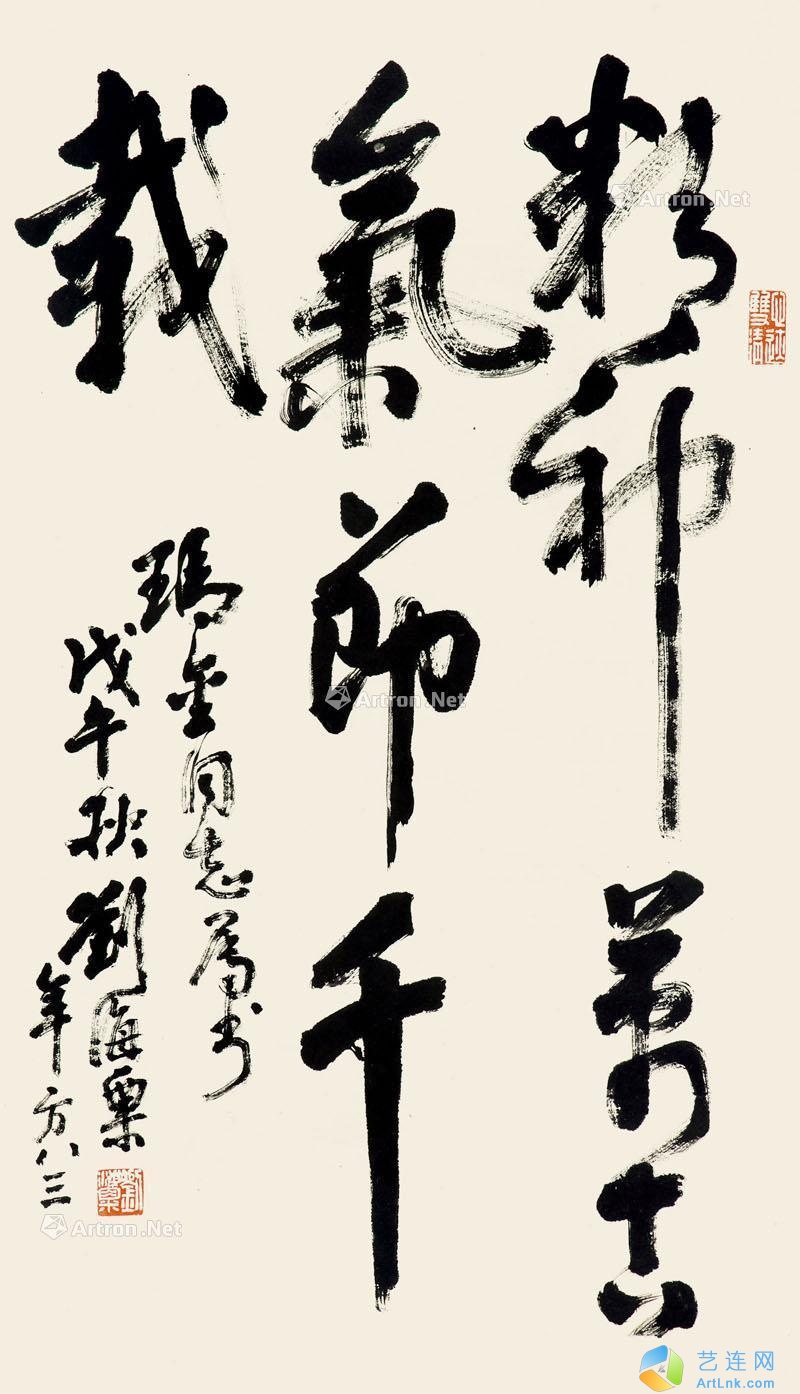 精神萬古
氣節千
載
瑪金同志属书
戊午秋劉海粟
年方八三
劉海粟
Artron.Net
Artron.Net
Artron.Net
艺连网
ArtLnk.com